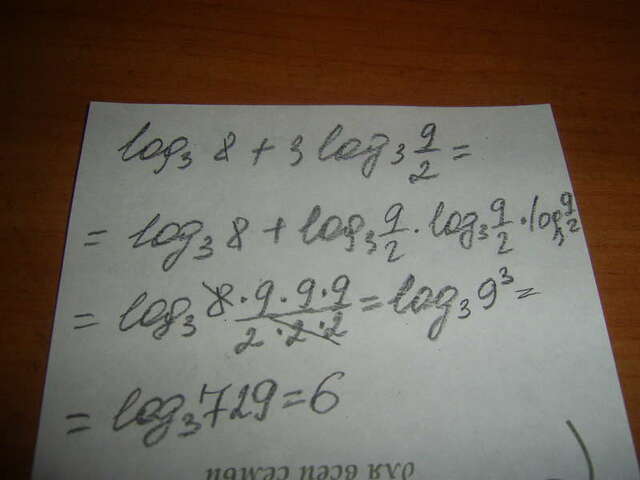 log₃ 8 + 3 log₃ 9/2 =
= log₃ 8 + log₃ 9/2 · log₃ 9/2 · log₃ 9/2
= log₃ (8 · 9 · 9 · 9)/(2 · 2 · 2) = log₃ 9³ =
= log₃ 729 = 6
для всей семьи